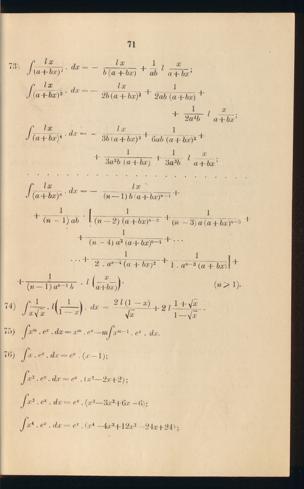 71
73) ∫ lx/(a+bx)² . dx = − lx/(b(a+bx)) + 1/(ab) l x/(a+bx);
∫ lx/(a+bx)³ . dx = − lx/(2b(a+bx)²) + 1/(2ab(a+bx)) +
+ 1/(2a²b) l x/(a+bx);
∫ lx/(a+bx)⁴ . dx = − lx/(3b(a+bx)³) + 1/(6ab(a+bx)²) +
+ 1/(3a²b(a+bx)) + 1/(3a³b) l x/(a+bx);
. . . . . . . . . . . . . . . . . . . .
∫ lx/(a+bx)ⁿ . dx = − lx/((n−1)b(a+bx)ⁿ⁻¹) +
+ 1/((n−1)ab) . [ 1/((n−2)(a+bx)ⁿ⁻²) + 1/((n−3)a(a+bx)ⁿ⁻³) +
+ 1/((n−4)a²(a+bx)ⁿ⁻⁴) + ...
... + 1/(2.aⁿ⁻⁴(a+bx)²) + 1/(1.aⁿ⁻³(a+bx)) ] +
+ 1/((n−1)aⁿ⁻¹b) . l (x/(a+bx)). (n > 1).
74) ∫ 1/(x√x) . l(1/(1−x)) . dx = 2l(1−x)/√x + 2l (1+√x)/(1−√x).
75) ∫xᵐ . eˣ . dx = xᵐ . eˣ − m∫xᵐ⁻¹ . eˣ . dx.
76) ∫x . eˣ . dx = eˣ . (x−1);
∫x² . eˣ . dx = eˣ . (x²−2x+2);
∫x³ . eˣ . dx = eˣ . (x³−3x²+6x−6);
∫x⁴ . eˣ . dx = eˣ . (x⁴−4x³+12x²−24x+24);